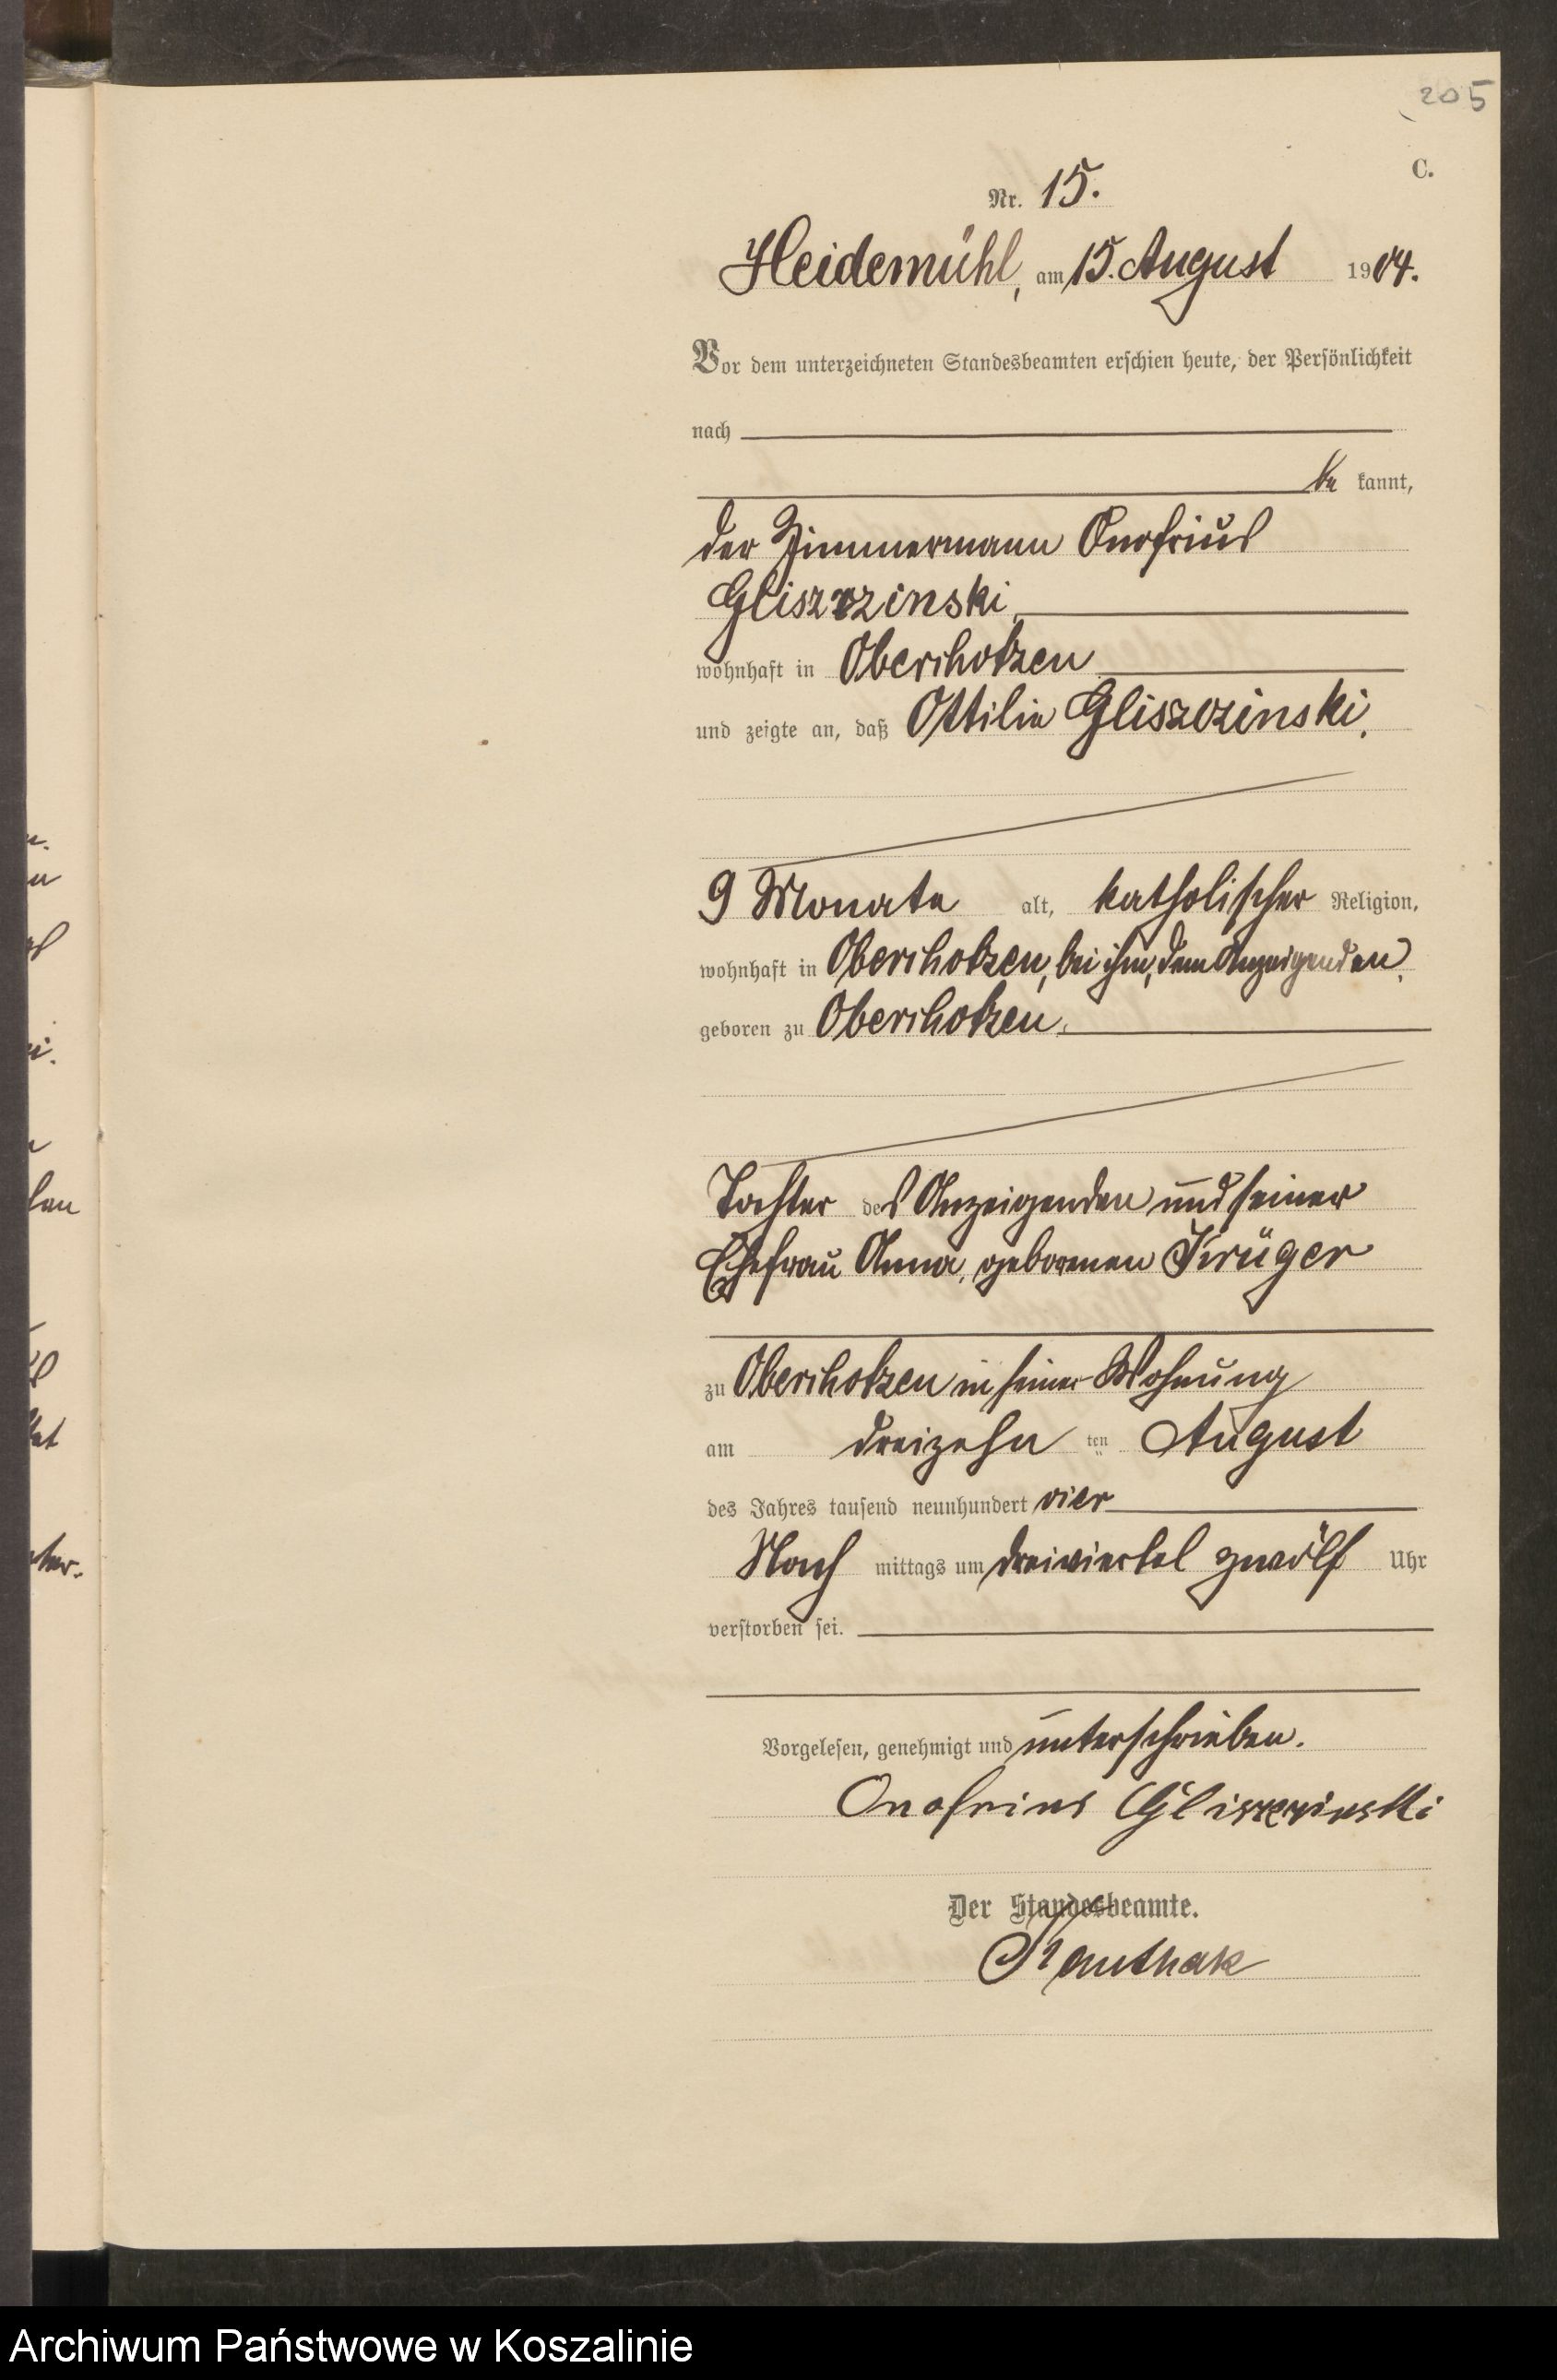 205
C.
Nr. 15.
Heidemühl, am 15. August 1904.
Vor dem unterzeichneten Standesbeamten erschien heute, der Persönlichkeit
nach
be kannt,
der Zimmermann Onofrius
Gliszczinski,
wohnhaft in Oberchotzen
und zeigte an, daß Ottilie Gliszczinski,
9 Monate alt, katholischer Religion,
wohnhaft in Oberchotzen, bei ihm, dem Anzeigenden,
geboren zu Oberchotzen,
Tochter des Anzeigenden und seiner
Ehefrau Anna, geborenen Krüger
zu Oberchotzen in seiner Wohnung
am dreizehn ten August
des Jahres tausend neunhundert vier
Nach mittags um dreiviertel zwölf Uhr
verstorben sei.
Vorgelesen, genehmigt und unterschrieben.
Onofrius Gliszczinski
Der Standesbeamte.
Archiwum Państwowe w Koszalinie